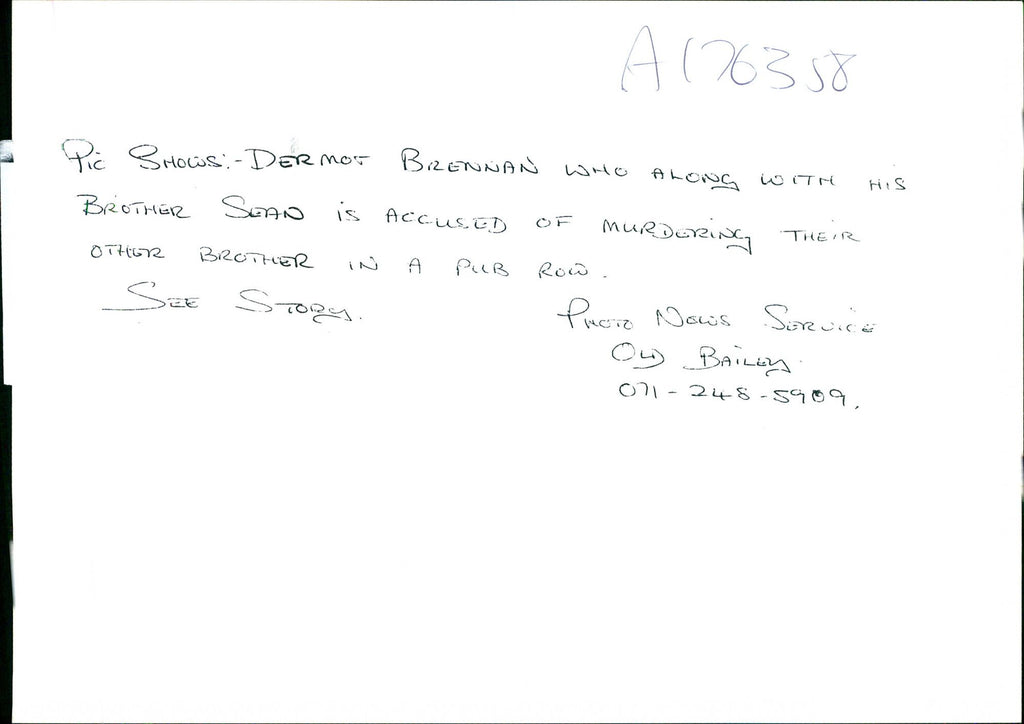 A176358
Pic Shows:- Dermot Brennan who along with his
Brother Sean is accused of murdering their
other brother in a pub row.
See Story.
Photo News Service
Old Bailey.
071-248-5909.